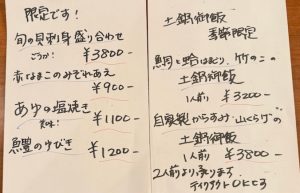 限定です!
旬の貝刺身盛り合わせ
ごうか! ¥3800-
赤なまこのみぞれあえ
¥900-
あゆの塩焼き
美味! ¥1100-
魚鱧のゆびき
¥1200-
土鍋御飯
季節限定
鯛と蛤はまぐり、竹のこの
土鍋御飯
1人前 ¥3200-
自家製からすみ・山くらげの
土鍋御飯
1人前 ¥3800-
2人前より承ります
テイクアウトOKです